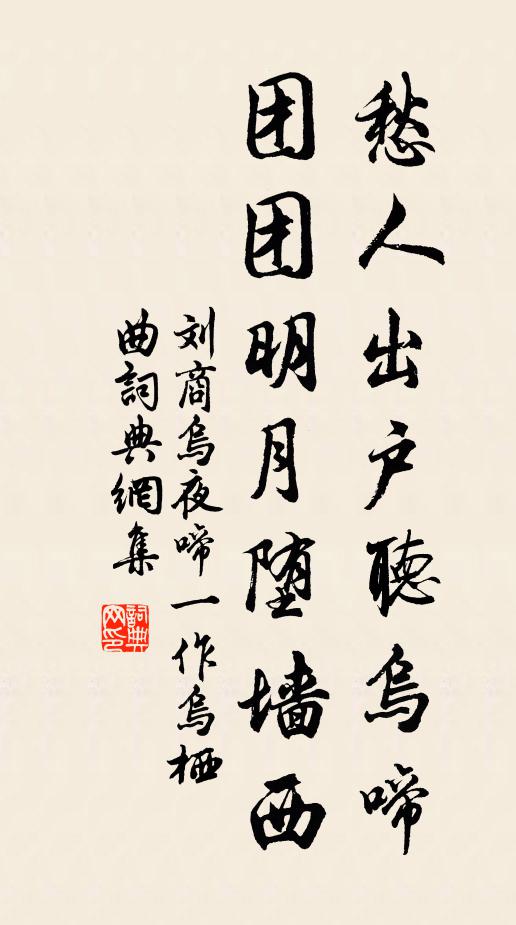 愁人出户聽烏啼
团团明月堕墙西
刘商烏夜啼一作烏栖
曲詞典網集
詞典
网印